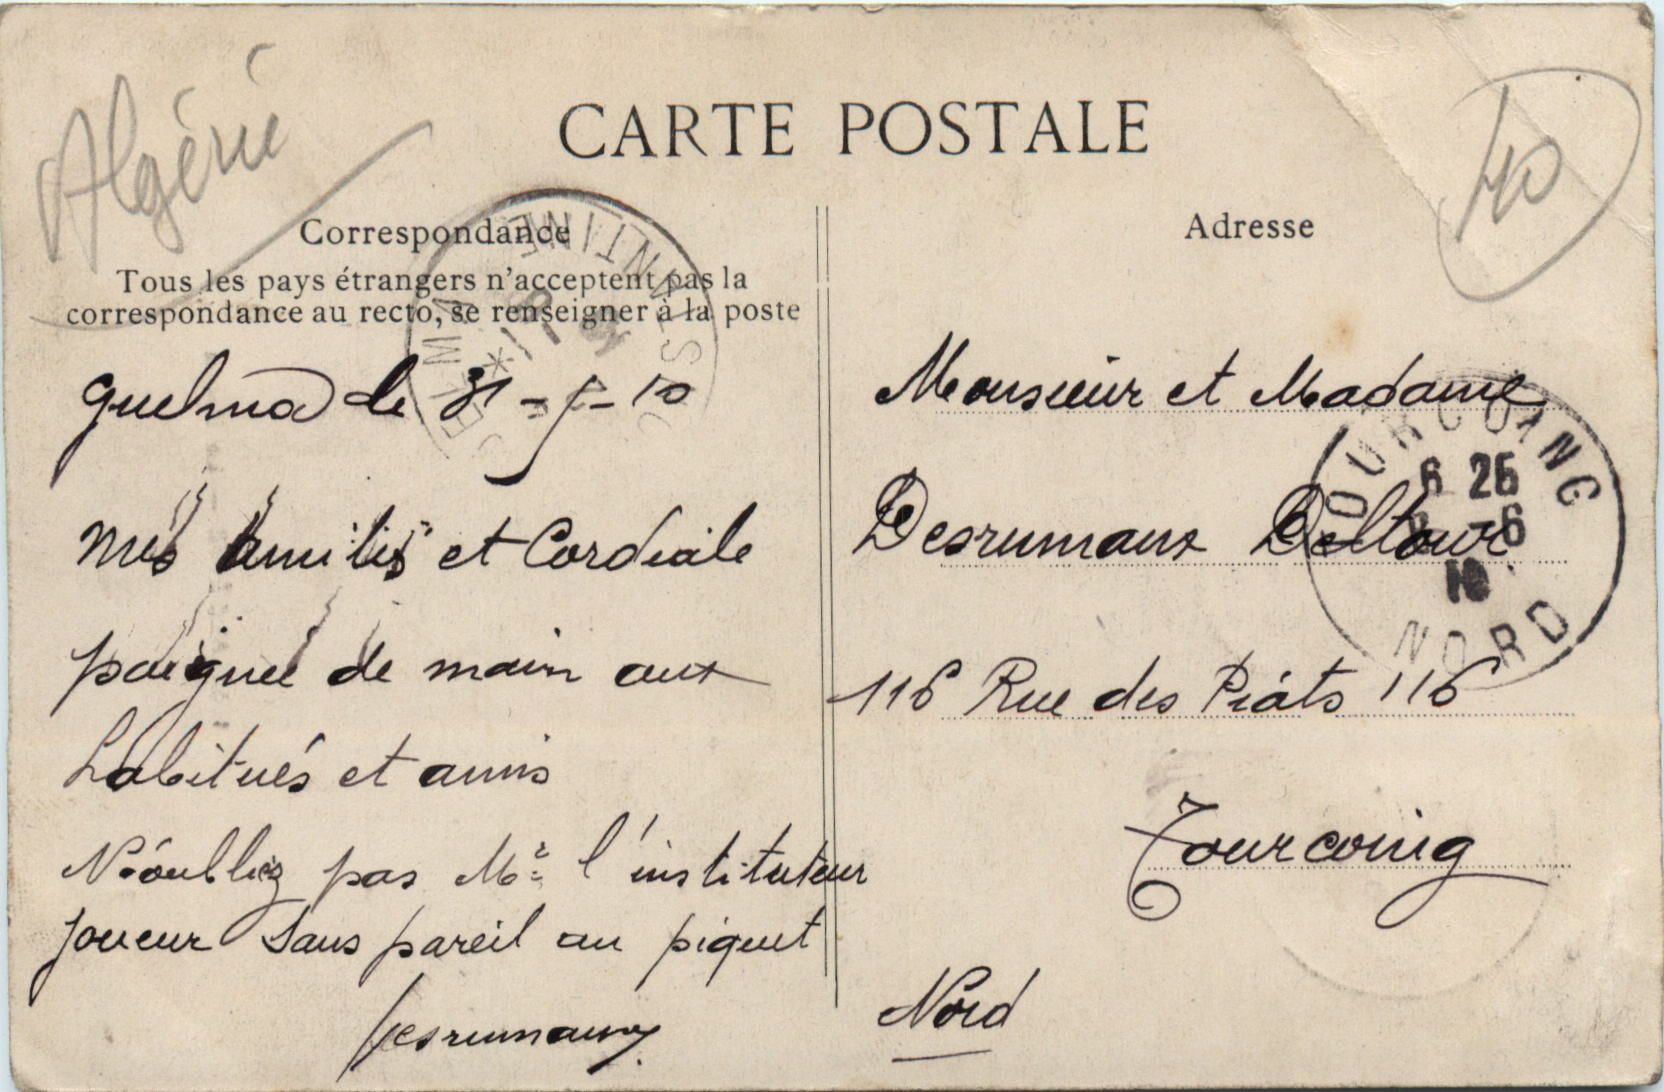 Algérie
40
CARTE POSTALE
Correspondance
Tous les pays étrangers n'acceptent pas la
correspondance au recto, se renseigner à la poste
CONSTANTINE
Guelma le 31-5-10
Mes amitiés et Cordiale
poignée de main aux
habitués et amis
N'oubliez pas Mr l'instituteur
Joueur Sans pareil au piquet
Desrumaux
Adresse
Monsieur et Madame
Desrumaux Deltour
116 Rue des Piats 116
Tourcoing
Nord
TOURCOING
6 25
6
10
NORD